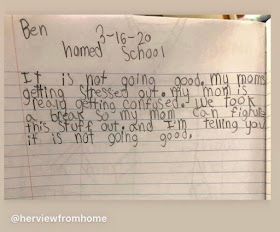 Ben
3-16-20
homed School
It is not going good. my mom
getting stressed out. my mom is
realy getting confused. We took
a break so my mom can figture
this stuff out. and I'm telling you
it is not going good.
@herviewfromhome